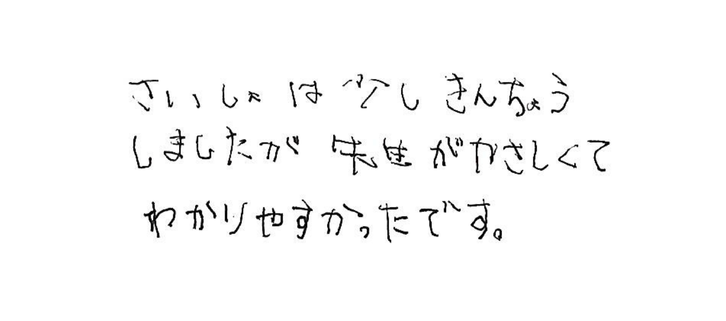 さいしょは少しきんちょう
しましたが先生がやさしくて
わかりやすかったです。